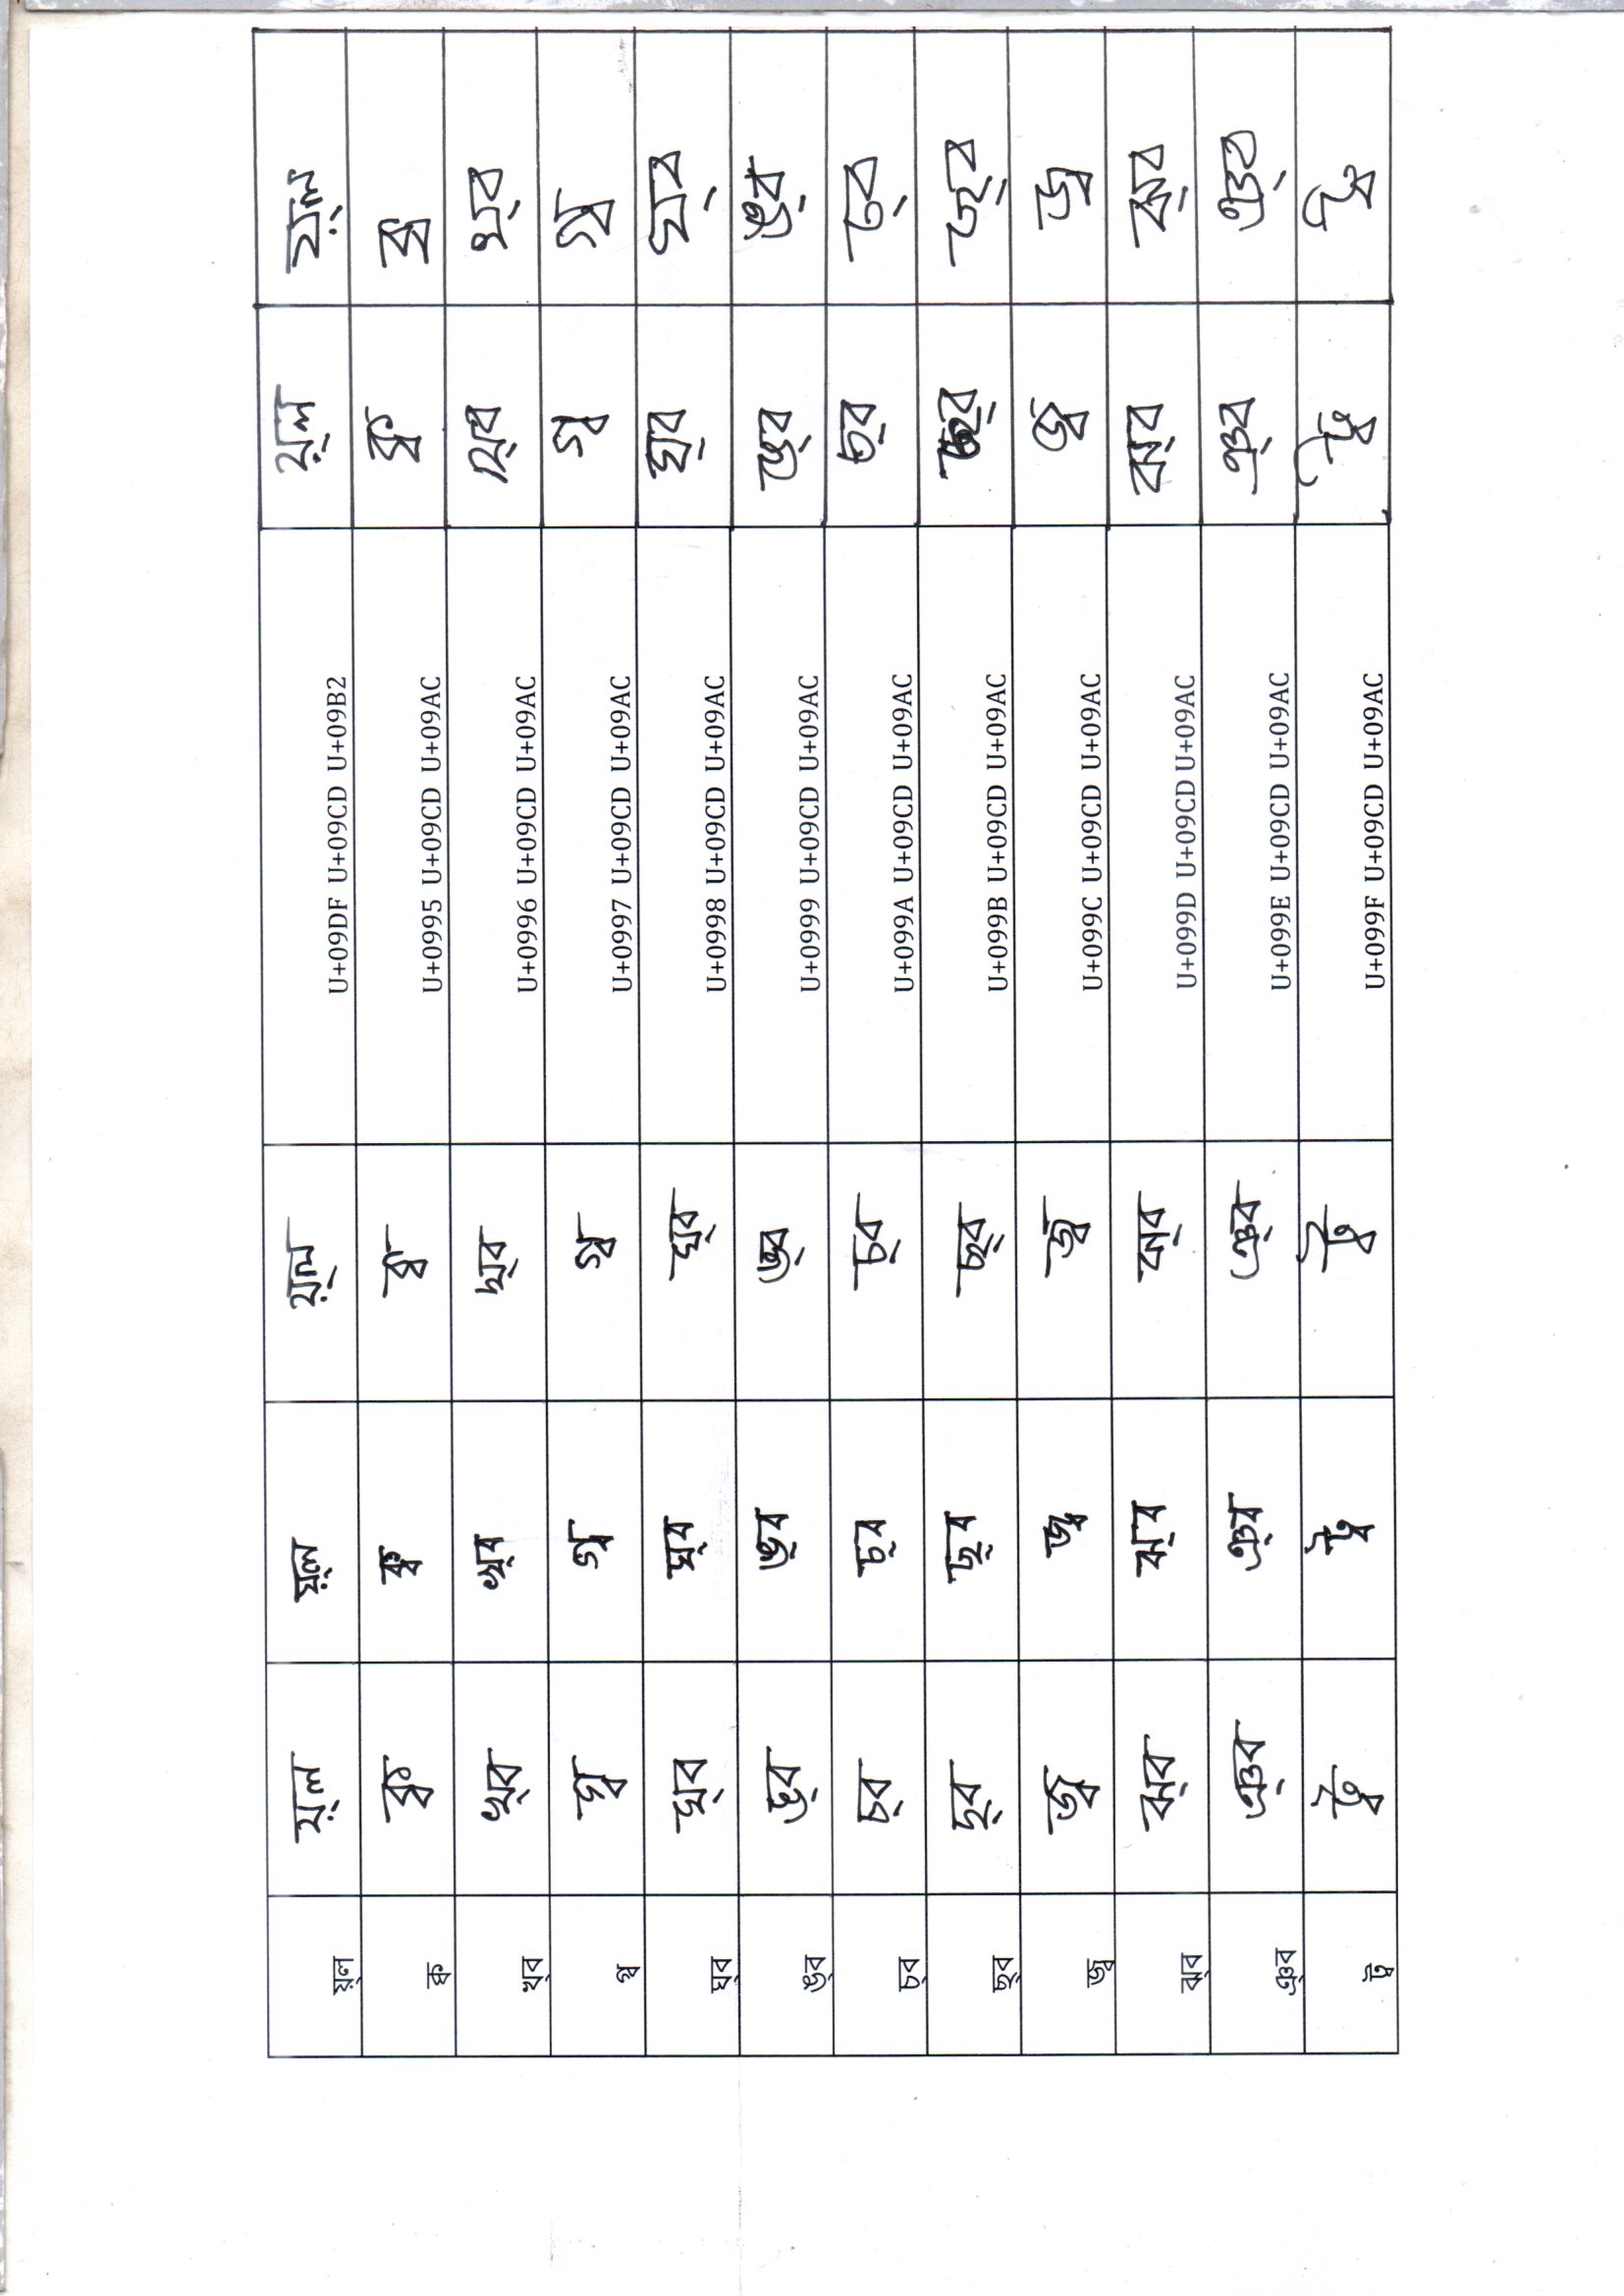 য়্ল য়্ল য়্ল য়্ল U+09DF U+09CD U+09B2 য়্ল য়্ল
ক্ব ক্ব ক্ব ক্ব U+0995 U+09CD U+09AC ক্ব ক্ব
খ্ব খ্ব খ্ব খ্ব U+0996 U+09CD U+09AC খ্ব খ্ব
গ্ব গ্ব গ্ব গ্ব U+0997 U+09CD U+09AC গ্ব গ্ব
ঘ্ব ঘ্ব ঘ্ব ঘ্ব U+0998 U+09CD U+09AC ঘ্ব ঘ্ব
ঙ্ব ঙ্ব ঙ্ব ঙ্ব U+0999 U+09CD U+09AC ঙ্ব ঙ্ব
চ্ব চ্ব চ্ব চ্ব U+099A U+09CD U+09AC চ্ব চ্ব
ছ্ব ছ্ব ছ্ব ছ্ব U+099B U+09CD U+09AC ছ্ব ছ্ব
জ্ব জ্ব জ্ব জ্ব U+099C U+09CD U+09AC জ্ব জ্ব
ঝ্ব ঝ্ব ঝ্ব ঝ্ব U+099D U+09CD U+09AC ঝ্ব ঝ্ব
ঞ্ব ঞ্ব ঞ্ব ঞ্ব U+099E U+09CD U+09AC ঞ্ব ঞ্ব
ট্ব ট্ব ট্ব ট্ব U+099F U+09CD U+09AC ট্ব ট্ব